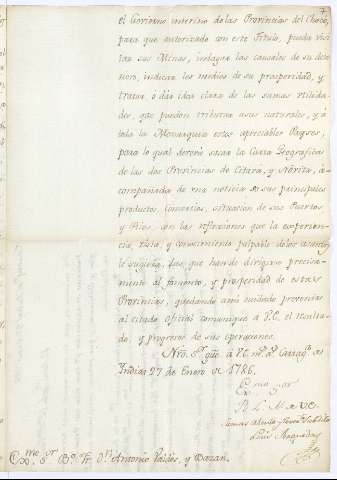 el Govierno interino de las Provincias del Chocó,
para que autorizado con este Titulo, pueda visi
tar sus Minas, indagar las causales de su deca
dencia, indicar los medios de su prosperidad, y
tratar, ó dar idea clara de las sumas utilida
des, que puedan tributar asus naturales, y á
toda la Monarquia estos apreciables Payses,
para lo qual deverá sacar la Carta Geografica
de las dos Provincias de Citará, y Nóvita, a
compañada de una noticia de sus principales
productos, Comercios, situacion de sus Puertos
y Rios, con las reflexiones que la experien
cia, vista, y conocimiento palpable delos asuntos
le sugiera, las que han de dirigirse precisa
mento al fomento, y prosperidad de estas
Provincias, quedando ami cuidado prevenir
al citado oficial comunique á V.E. el resulta
do y progreso de sus operaciones.
Nro. Sr. gue. á V.E. ms. as. Cartagª de
Indias 27 de Enero de 1786.
Exmo. Sor.
B. L. M. de V.E.
Exmo. Sr. Bo. Fr. Dn. Antonio Valdés, y Bazan.